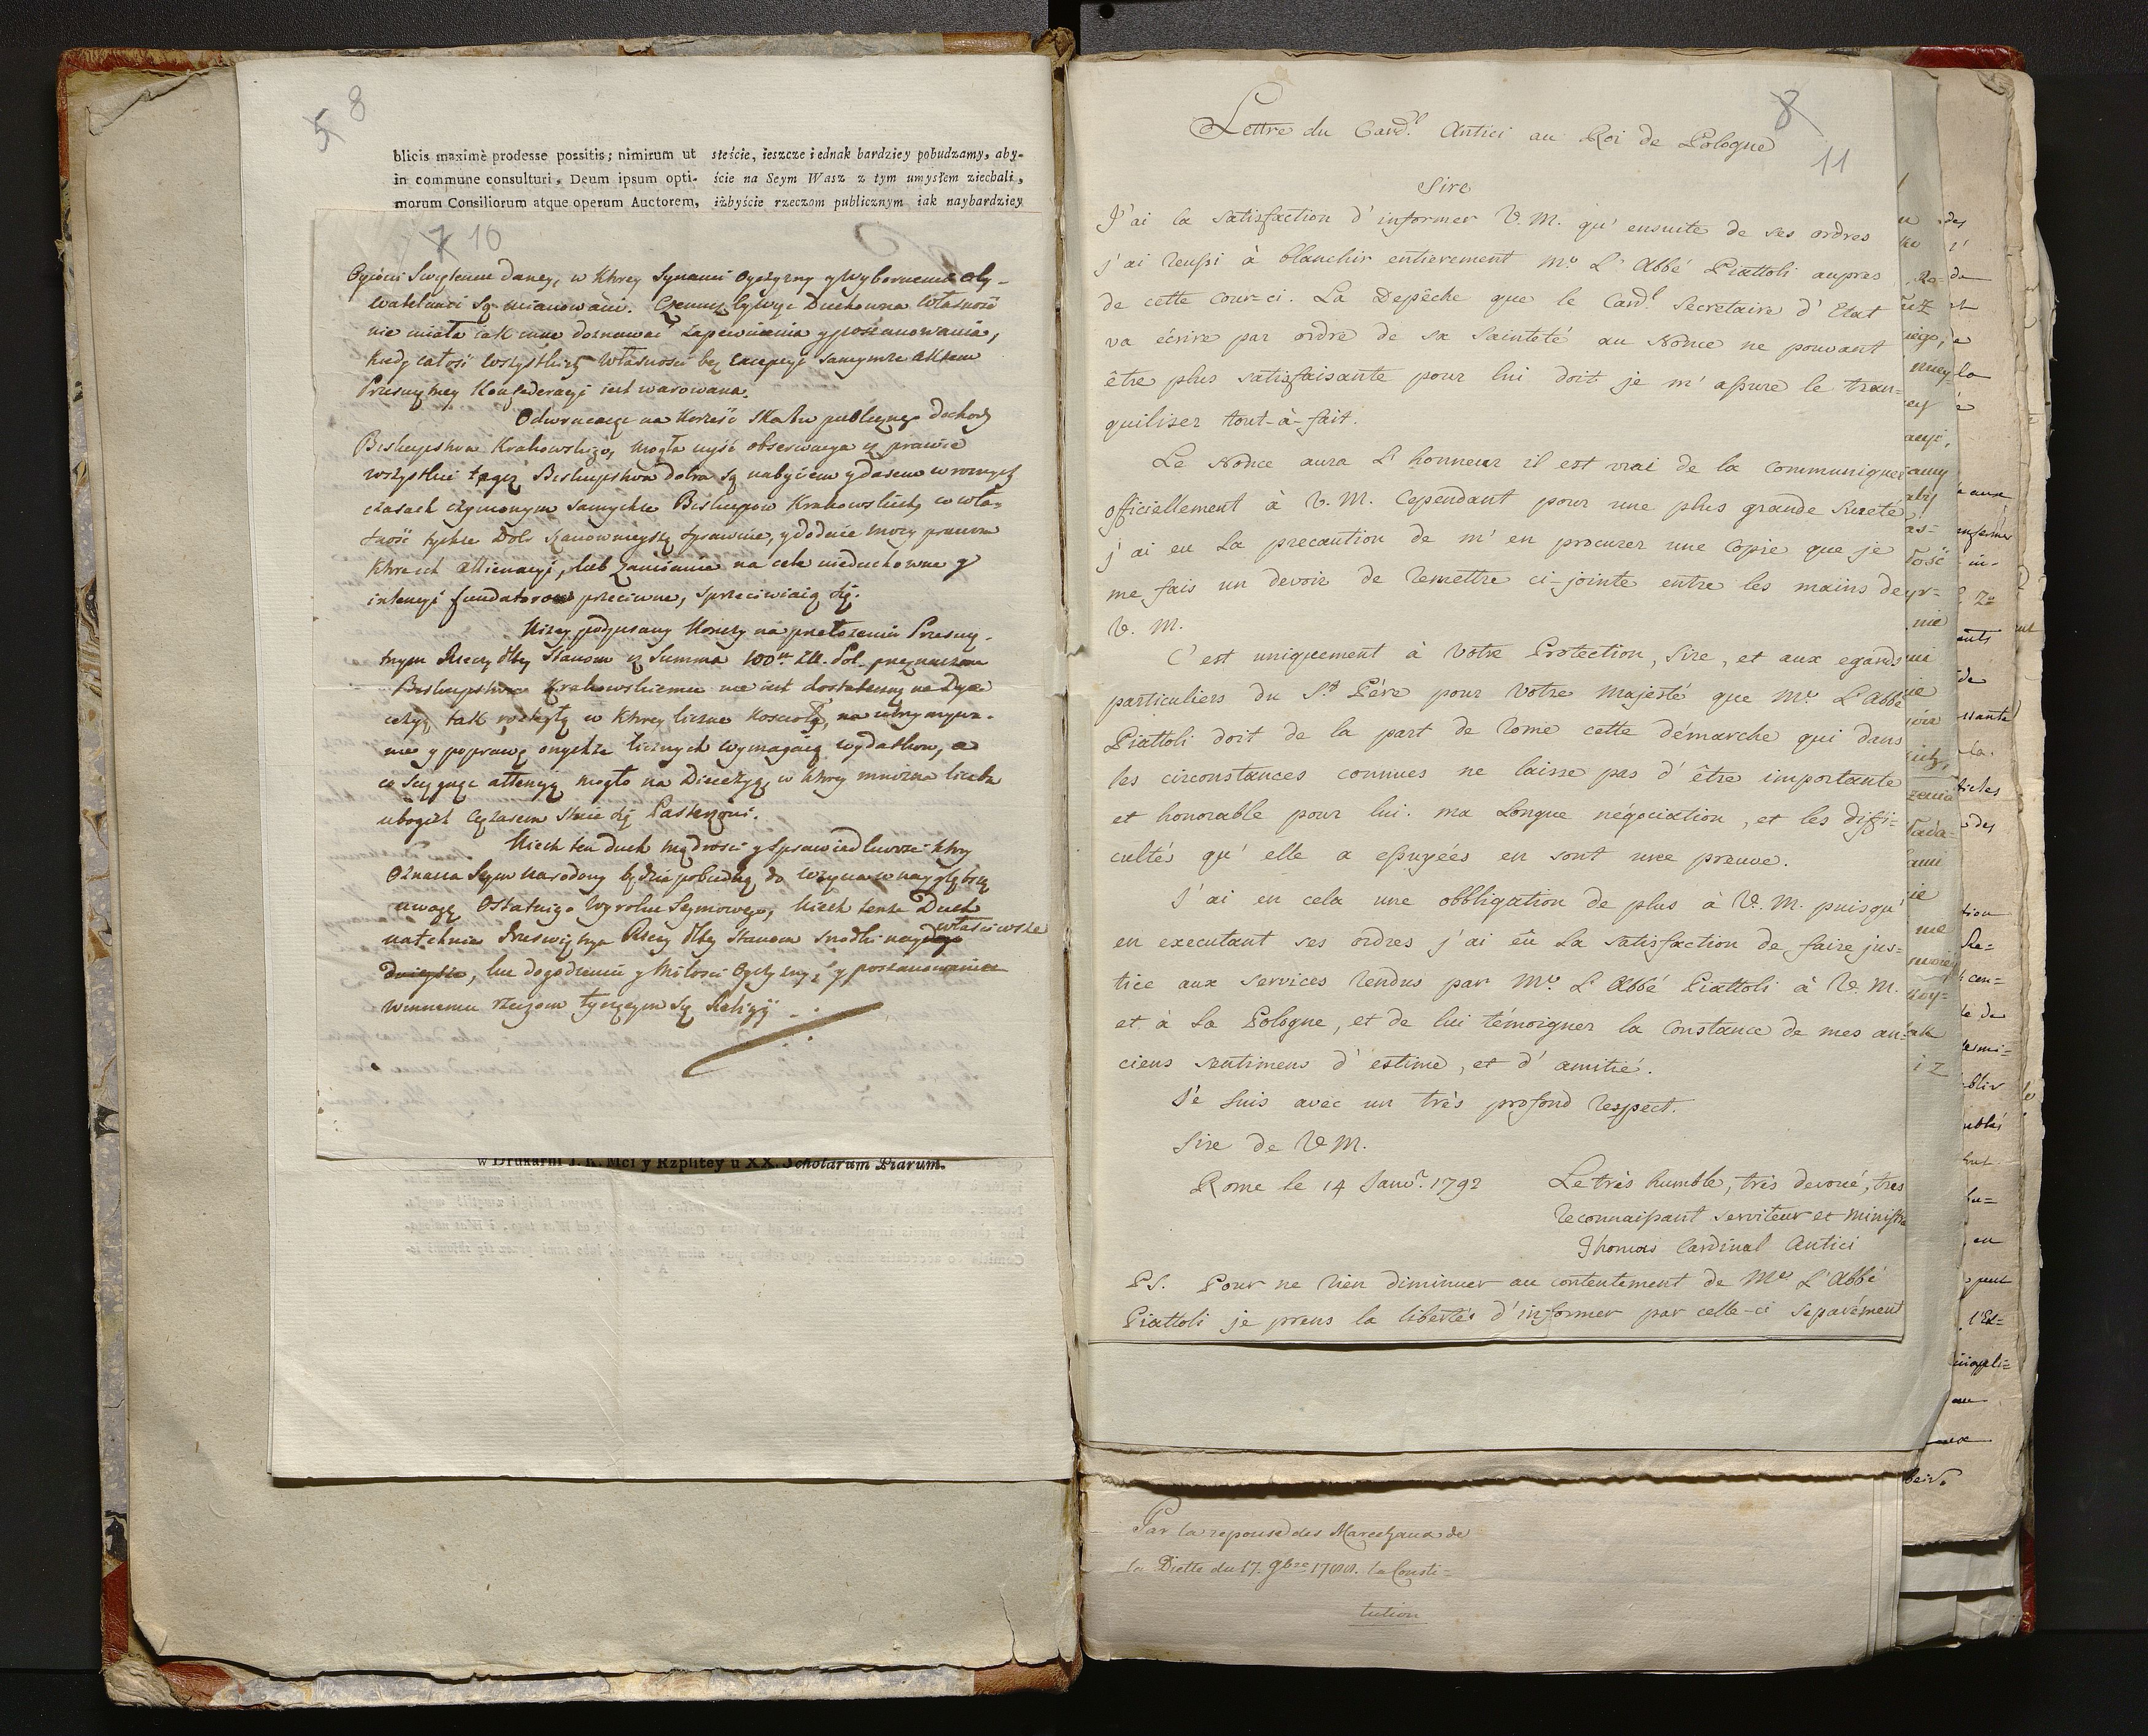 5 8
blicis maximè prodesse possitis; nimirum ut
in commune consulturi, Deum ipsum opti-
morum Consiliorum atque operum Auctorem,
steście, ieszcze iednak bardziey pobudzamy, aby-
ście na Seym Wasz z tym umysłem ziechali,
iżbyście rzeczom publicznym iak naybardziey
7 10
Oyców Swiętemu daney, w ktorey Synami Oyczyzny y wybornemi Oby-
watelami są mianowani. Czemuż bywye Duchowna Własność
nie miała iak inne doznawać zapewnienia y poszanowania,
kiedy całość wszystkich Własności bez excepcyi samymże Aktem
Prześwietney Konfederacyi iest warowana.
Odwracaiąc na korzyść Skarbu publicznego dochody
Biskupstwa Krakowskiego, mogła uyść obserwacya iż prawie
wszystkie tegoż Biskupstwa dobra są nabyciem y darem w roznych
czasach czynionym samychże Biskupow Krakowskich, co wła-
sność tychże Dobr szanownieyszą sprawuie, y dodaie mocy prawom
ktore ich Allienacyi, lub zamianie na cele nieduchowne y
intencyi fundatorow przeciwne, sprzeciwiaią się.
Niżey podpisany kończy na przełożeniu Przeswie-
tnym Rzeczy Plty Stanom iż Summa 100m Zł. Pol. przeznaczona
Biskupstwu Krakowskiemu nie iest dostateczną na Dye-
cezyą tak rozległą w ktorey liczne koscioły, na utrzymywa-
nie y poprawę onychże licznych wymagaią wydatkow, a
co sciągać attencyą mogło na Diecezyą, w ktorey mnożna liczba
ubogich ciężarem staie się Pasterzowi.
Niech ten duch mądrości y sprawiedliwości ktory
Oznacza Seym Narodowy będzie pobudką do wzięcia w naygłębszą
uwagę Ostatniego Wyroku Seymowego, Niech tenże Duch
natchnie Przeswietnym Rzeczy Plty Stanom srodki nay
właściwsze
, ku dogodzeniu y Miłości Oyczyzny, y poszanowaniu
winnemu rzeczom tyczącym się Religii
w Drukarni J. K. Mci y Rzplitey u XX. Scholarum Piarum.
8 11
Lettre du Card.l Antici au Roi de Pologne
Sire
J'ai la satisfaction d'informer V. M. qu'ensuite de ses ordres
j'ai reussi à blanchir entierement Mr L'Abbé Piattoli aupres
de cette cour-ci. La Depêche que le Cardl Secretaire d'Etat
va écrire par ordre de sa Sainteté au Nonce ne pouvant
être plus satisfaisante pour lui doit je m'assure le tran=
quiliser tout-à-fait.
Le Nonce aura L'honneur il est vrai de la communiquer
officiellement à V. M. Cependant pour une plus grande Sureté
j'ai eu La precaution de m'en procurer une Copie que je
me fais un devoir de remettre ci-jointe entre les mains de
V. M.
C'est uniquement à Votre Protection, Sire, et aux egards
particuliers du St. Pére pour Votre Majesté que Mr L'Abbé
Piattoli doit de la part de Rome cette démarche qui dans
les circonstances connues ne laisse pas d'être importante
et honorable pour lui. ma Longue négociation, et les diffi=
cultés qu'elle a essuyées en sont une preuve.
J'ai en cela une obbligation de plus à V. M. puisqu'
en executant ses ordres j'ai eû La satisfaction de faire jus=
tice aux services rendus par Mr L'Abbé Piattoli à V. M.
et à La Pologne, et de lui témoigner la constance de mes an=
ciens sentimens d'estime, et d'amitié.
Je Suis avec un très profond respect.
Sire de V M.
Rome le 14 Janvr. 1792
Le très humble, très devoué, très
reconnaissant serviteur et Ministre
Thomas Cardinal Antici
PS. Pour ne rien diminuer au contentement de Mr L'Abbé
Piattoli je prens la libertés d'informer par celle-ci separément
Par la reponse des Marechaux de
la Diette du 17. 9bre 1788. la Consti=
tution